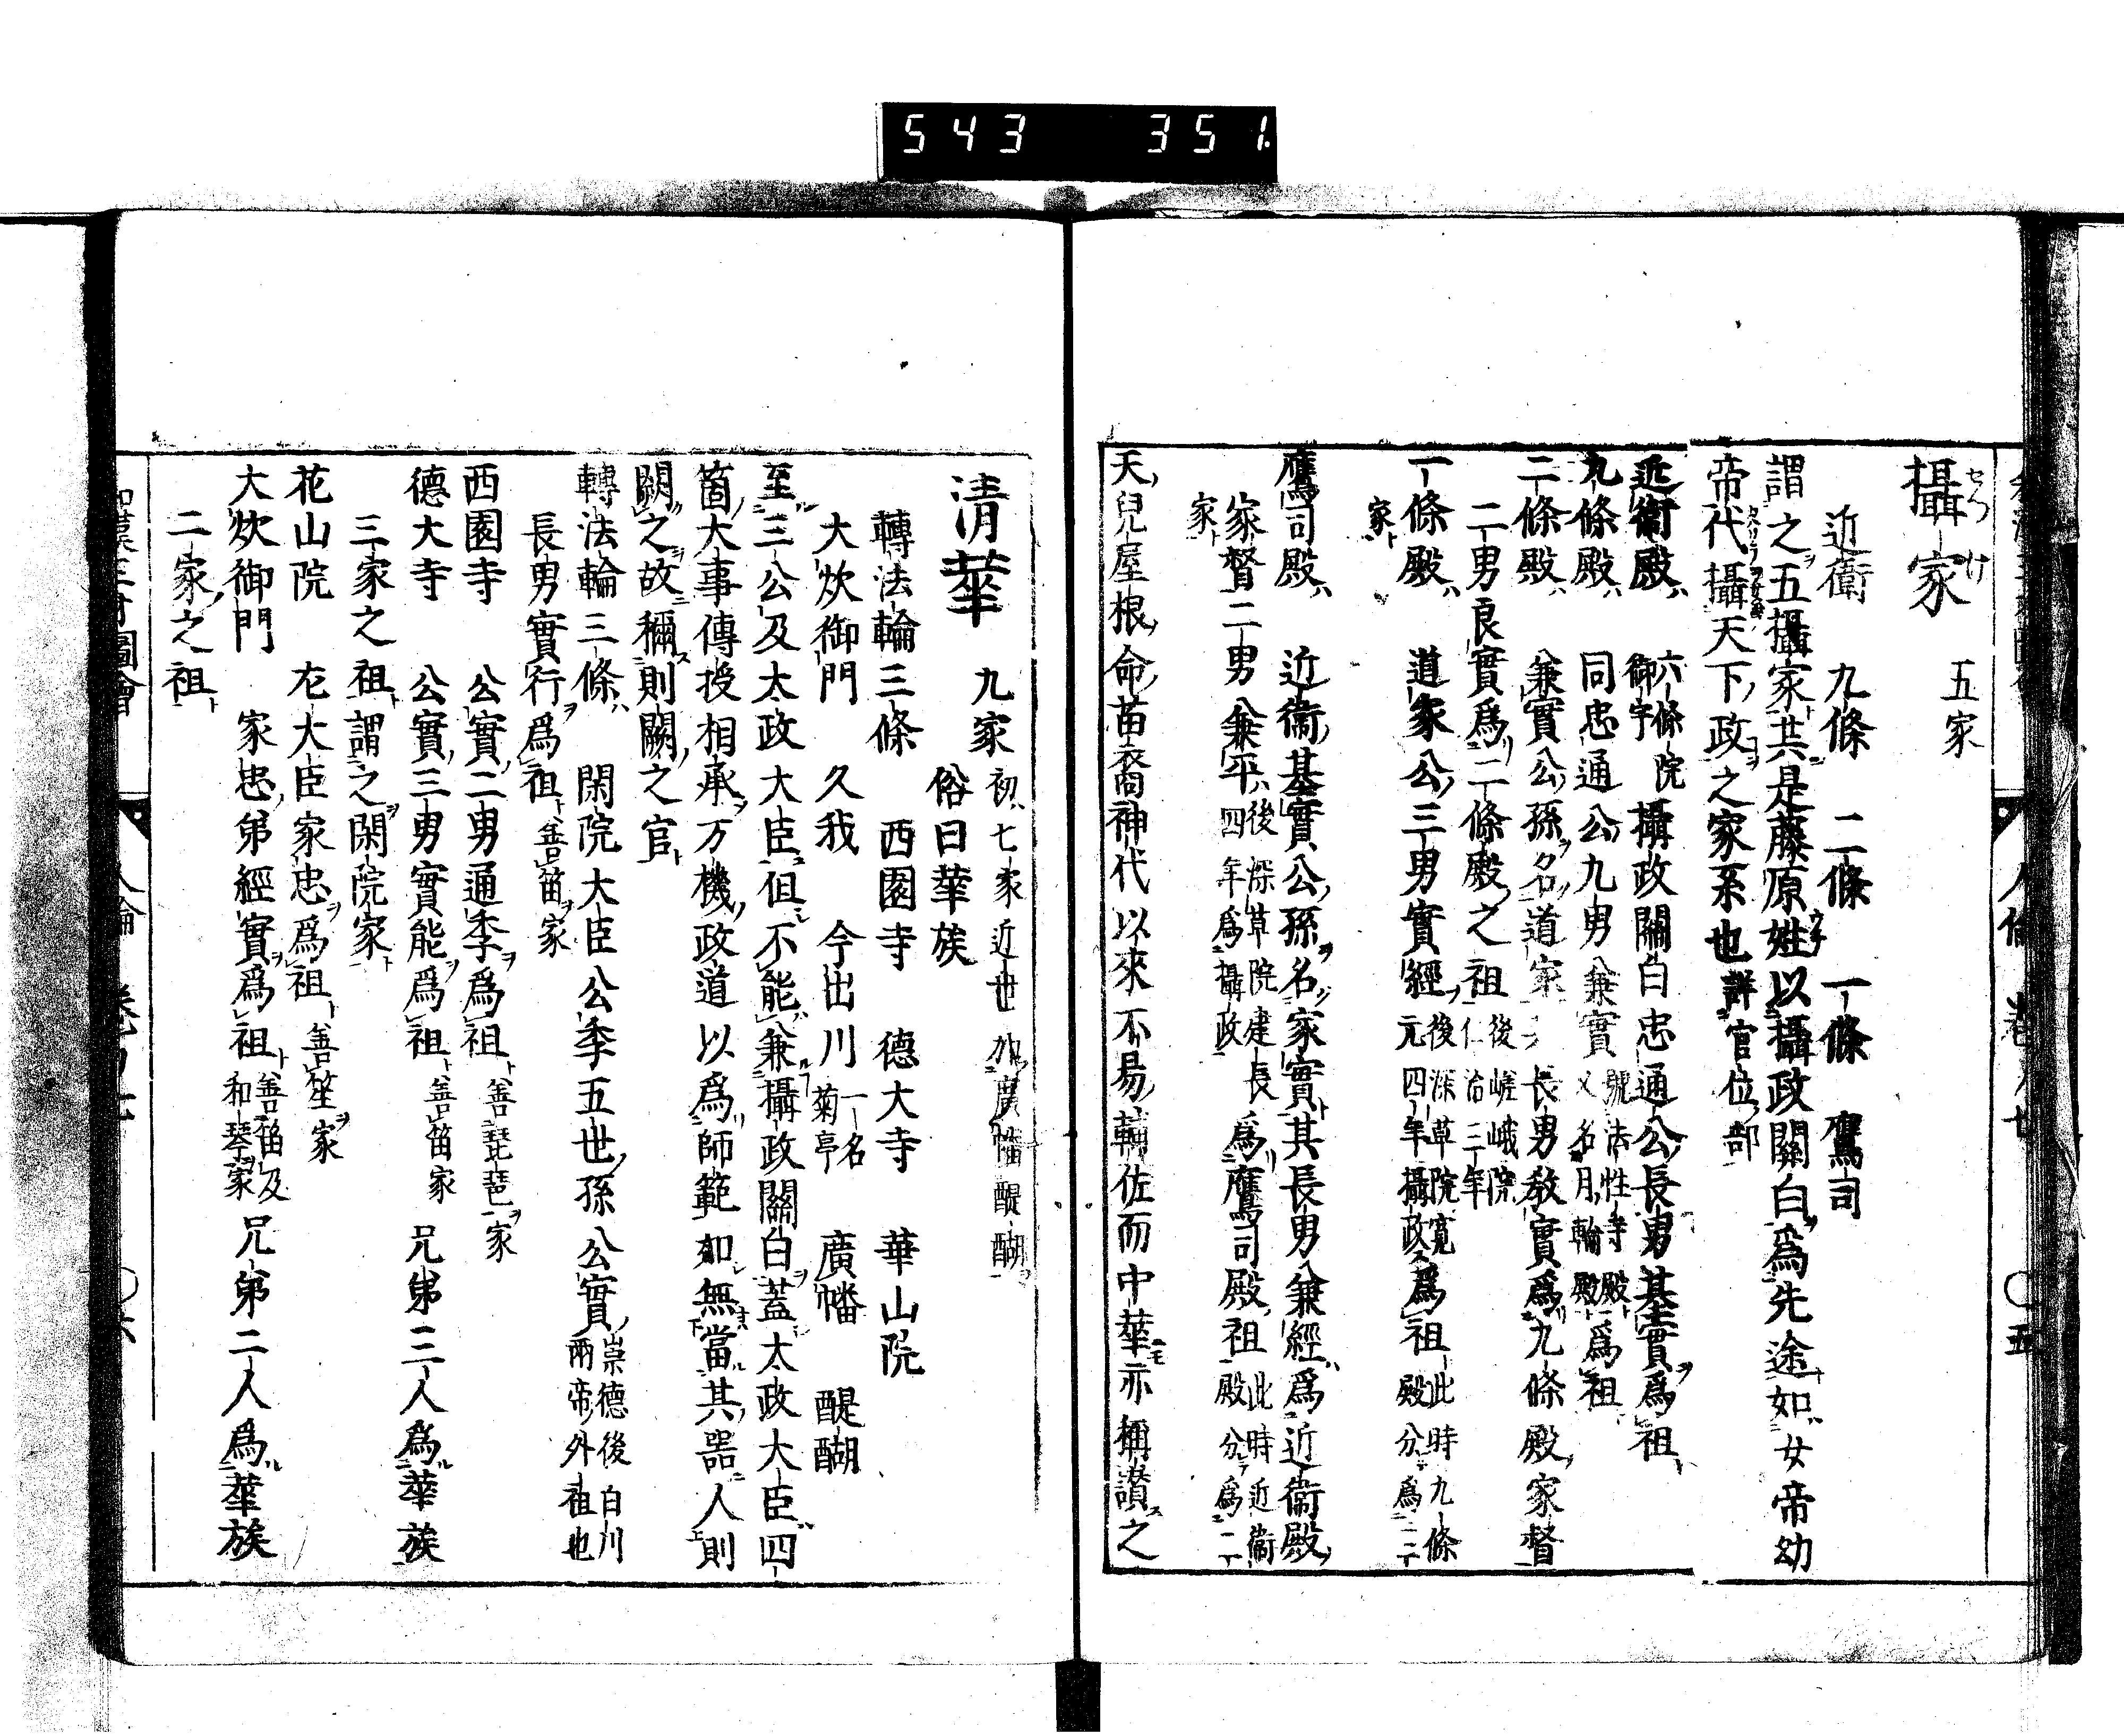 543 351
攝家 五家
近衞 九條 二條 一條 鷹司
謂之五攝家共是藤原姓以攝政關白爲先途如女帝幼
帝代攝天下政之家系也詳官位部
近衞殿 六條院御宇攝政關白忠通公長男基實爲祖
九條殿 同忠通公九男兼實號法性寺殿又名月輪殿爲祖
二條殿 兼實公孫名道家長男敎實爲九條殿家督
二男良實爲二條殿之祖後嵯峨院仁治三年
一條殿 道家公三男實經後深草院寛元四年攝政爲祖此時九條殿分爲二
家
鷹司殿 近衞基實公孫名家實其長男兼經爲近衞殿
家督二男兼平後深草院建長四年爲攝政爲鷹司殿祖此時近衞殿分爲二
家
天兒屋根命苗裔神代以來不易輔佐而中華亦稱讃之
人倫 卷 五
清華 九家初七家近世加廣幡醍醐
俗曰華族
轉法輪三條 西園寺 德大寺 華山院
大炊御門 久我 今出川一名菊亭 廣幡 醍醐
至三公及太政大臣但不能兼攝政關白蓋太政大臣四
箇大事傳授相承万機政道以爲師範如無當其器人則
闕之故稱則闕之官
轉法輪三條 閑院大臣公季五世孫公實崇德後白川兩帝外祖也
長男實行爲祖善笛家
西園寺 公實二男通季爲祖善琵琶家
德大寺 公實三男實能爲祖善笛家兄弟三人爲華族
三家之祖謂之閑院家
花山院 左大臣家忠爲祖善笙家
大炊御門 家忠弟經實爲祖善笛及和琴家兄弟二人爲華族
二家之祖
圖會 六